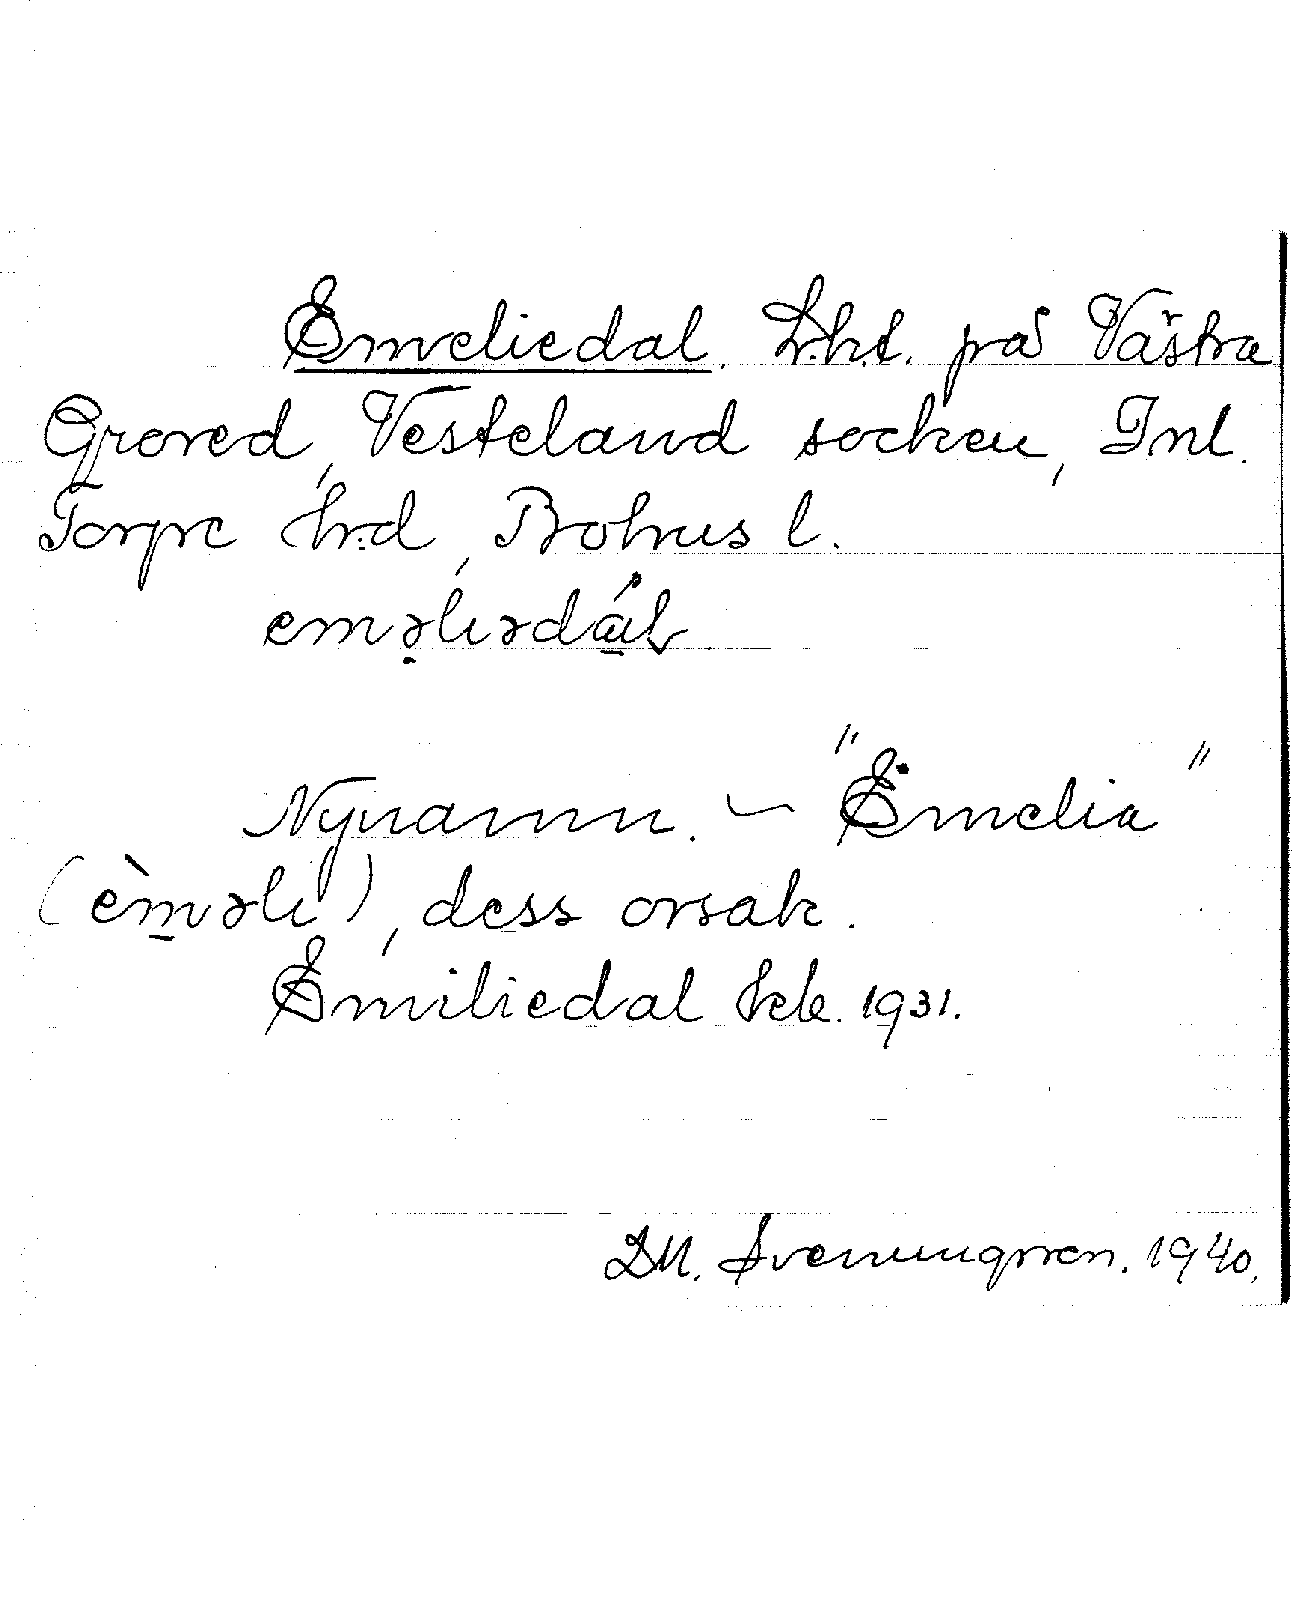 Emeliedal. Lht. på Västra
Grored, Vesteland socken, Inl.
Torpe hrd, Bohus l.
eməliədál
Nynamn. – "Emelia"
(èməli), dess orsak.
Emiliedal Itelk. 1931.
D.M. Svenungsson. 1940.